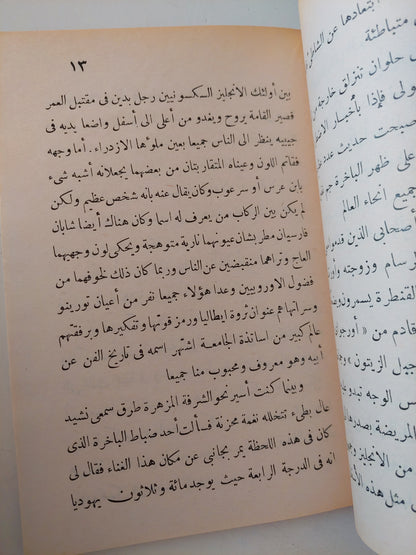 ١٣
بين أولئك الانجليز السكسونيين رجل بدين فى مقتبل العمر
قصير القامة يروح ويغدو من أعلى الى أسفل واضعا يديه فى
جيبيه ينظر الى الناس جميعا بعين ملؤها الازدراء. أما وجهه
فقاتم اللون وعيناه المتقاربتان من بعضهما يجعلانه أشبه شىء
بابن عرس أو سرعوب وكان يقال عنه بانه شخص عظيم ولكن
لم يكن بين الركاب من يعرف له اسما وكان هناك أيضا شابان
فارسيان مطربشان عيونهما نارية متوهجة ويحكى لون وجهيهما
العاج وتراهما منقبضين عن الناس وربما كان ذلك لخوفهما من
فضول الاوروبيين وعدا هؤلاء جميعا نفر من أعيان تورينو
وسراتها هم عنوان ثروة ايطاليا ورمز قوتها وتفكيرها وبرفقتهم
عالم كبير من اساتذة الجامعة اشتهر اسمه فى تاريخ الفن عن
أبيه وهو معروف ومحبوب منا جميعا
وبينما كنت أسير نحو الشرفة المزهرة طرق سمعى نشيد
عال بطىء تتخلله نغمة محزنة فسألت أحد ضباط الباخرة الذى
كان فى هذه اللحظة يمر بجانبى عن مكان هذا الغناء فقال لى
انه فى الدرجة الرابعة حيث يوجد مائة وثلاثون يهوديا
ابتعادها عن الشاطئ
متباطئة
حلوان تنزلق خارجة من
ولى فإذا بأخيار
صبحت حديث عدد
على ظهر الباخرة
جميع انحاء العالم
أصحابى الذين قدموا
رسام وزوجته و
القنطرة يسمرون
قادم من « أور
جبل الزيتون »
س الوجه تبدو
المريضة بصدرها
من الانجليز و
فى مثل هذه الأ